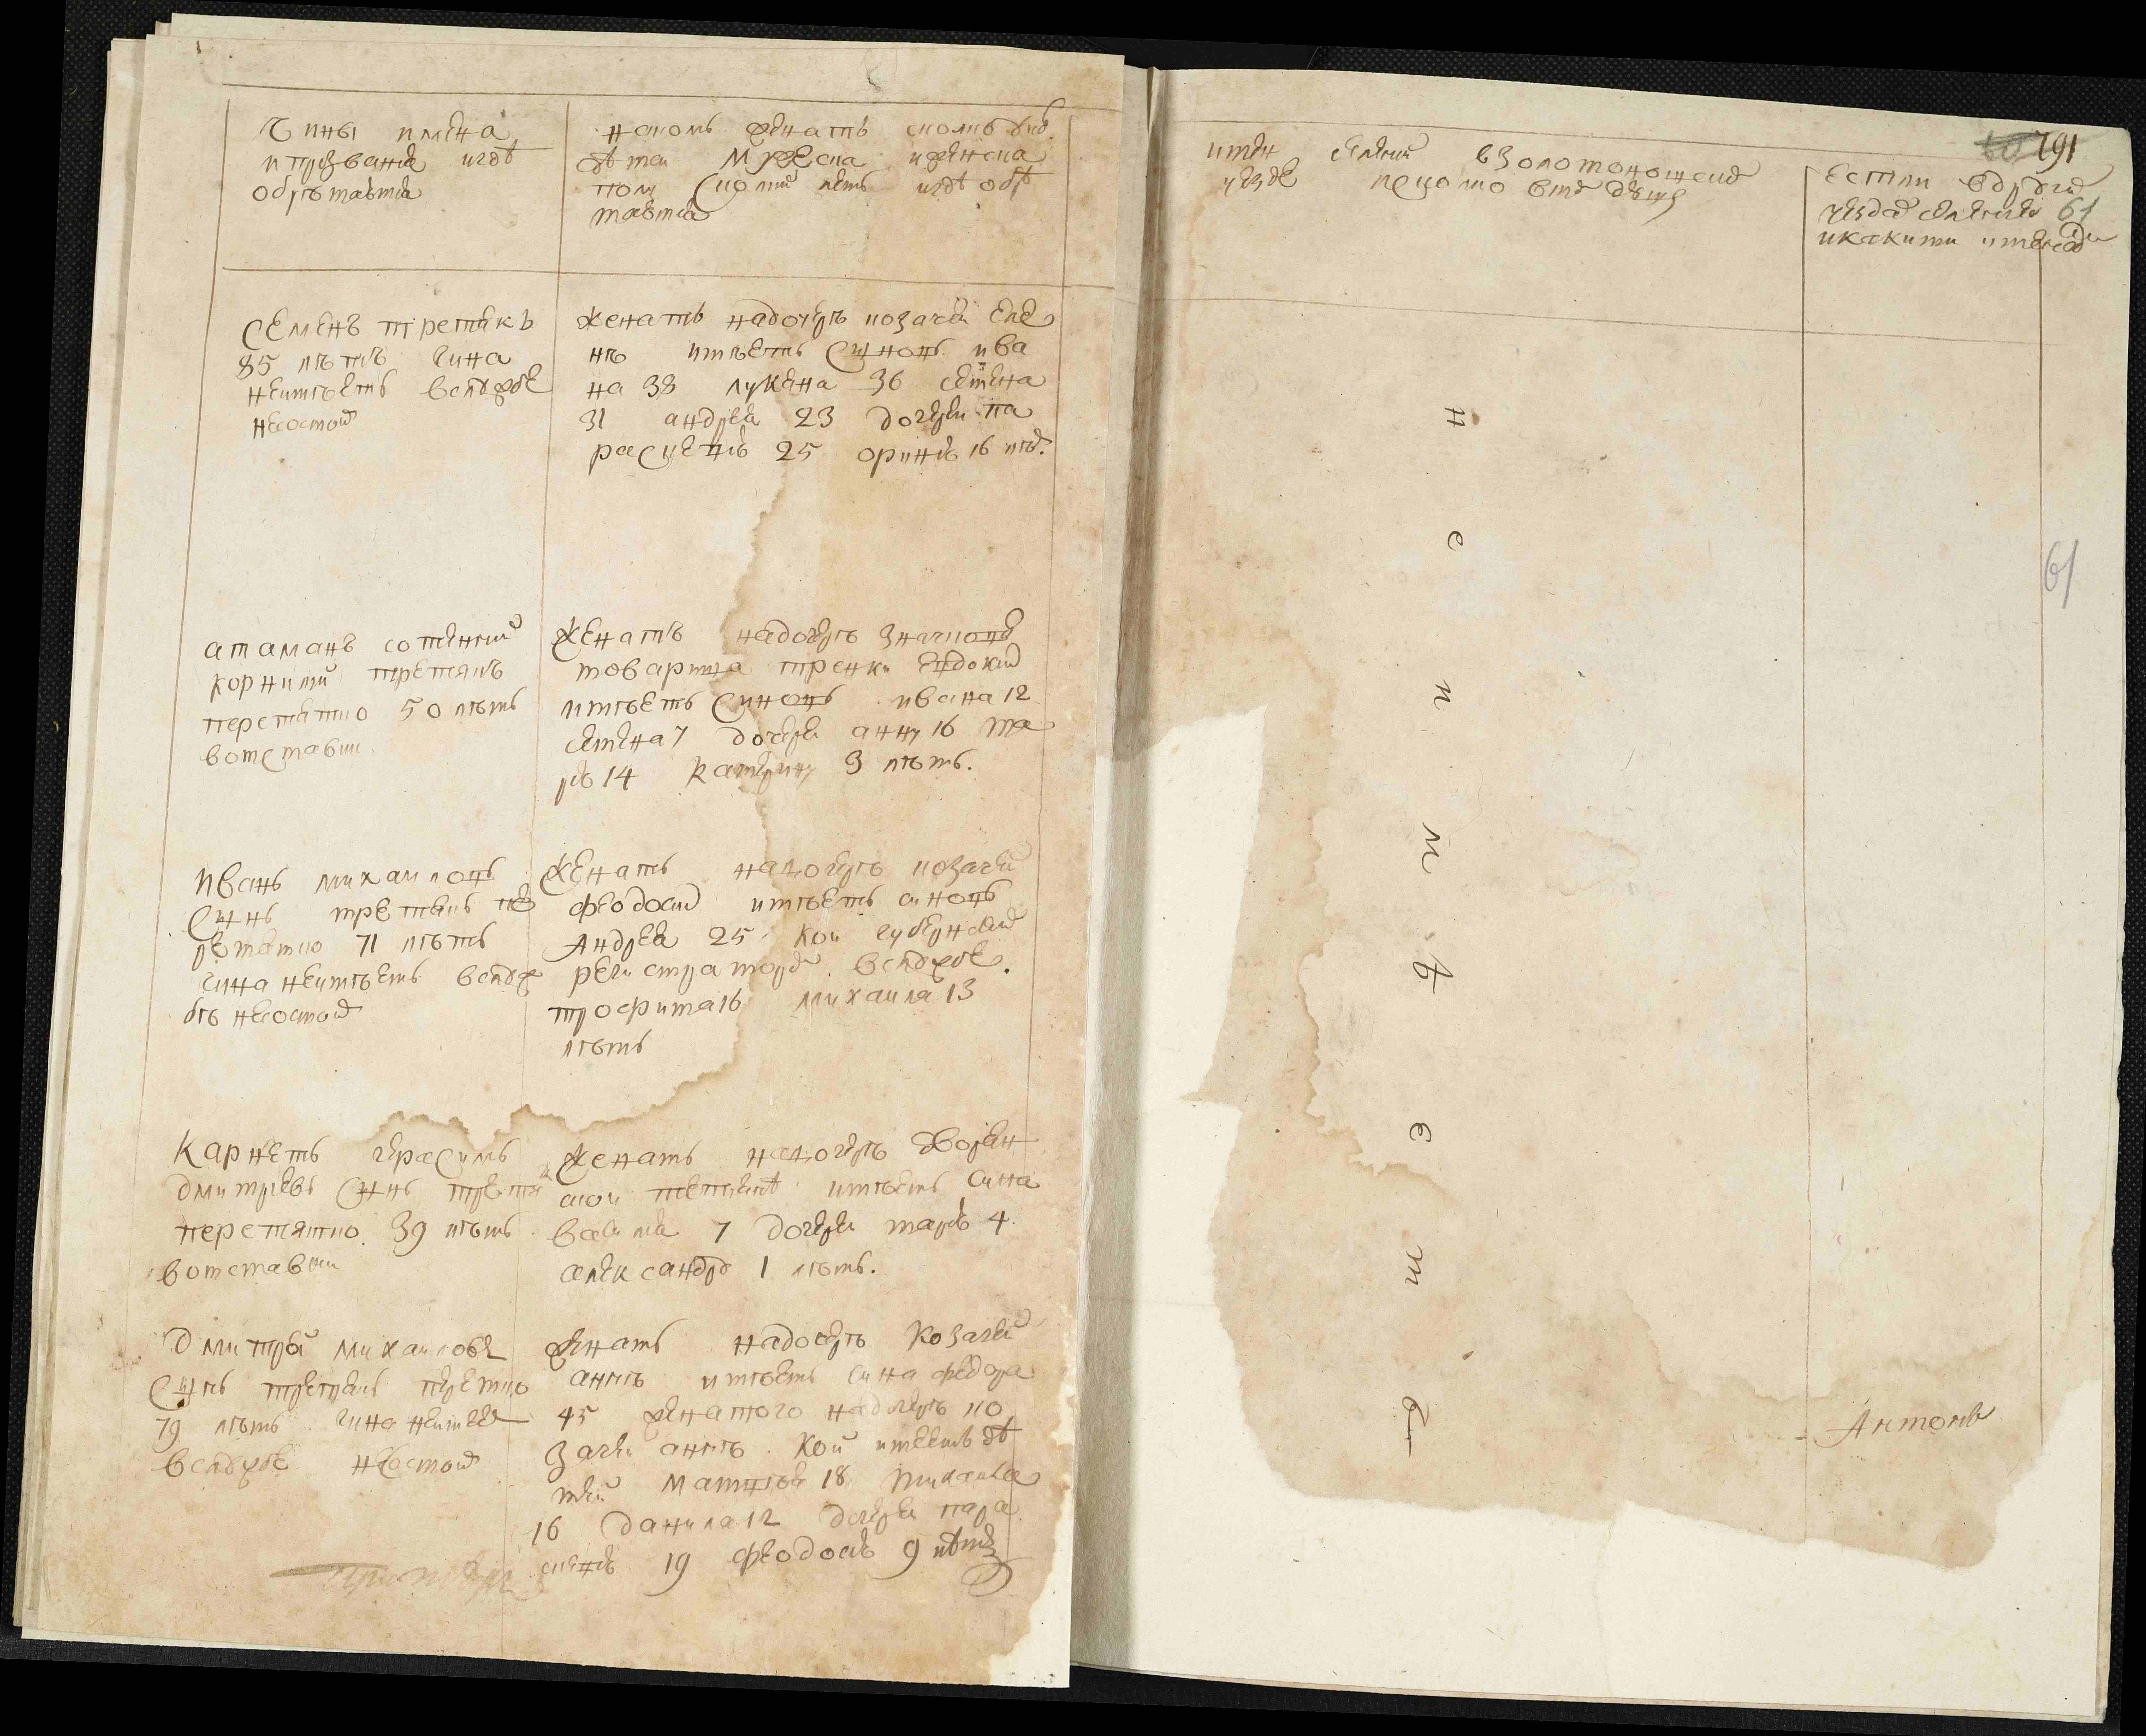 Чины имена
и прозвания и где
обретается
на комъ женатъ сколко ону
детей мужеска и женска
полу сколко летъ и где обре
тается
имен селения в золотоношско
уезде и сколко в те душ
естли в других
уездах селения
и каким именом
791
61
61
Семенъ третякъ
85 летъ чина
не имеетъ в службе
не состоит
женатъ на дочере козачей еле
не имеетъ синовъ ива
на 38 лукяна 36 семена
31 андрея 23 дочерей па
раскеню 25 орину 16 лет.
атаманъ сотенний
корнилий третякъ
перетятко 50 летъ
в отставки
женатъ на дочере значкова
товарища тренки евдокии
имеетъ синовъ ивана 12
семена 7 дочерей анну 16 ма
рю 14 катерину 3 летъ.
Иванъ михаиловъ
синъ третякъ пе
ретятко 71 летъ
чина не имеетъ в служ
бе не состоит
женатъ на дочере козачей
феодосии имеетъ синовъ
Андрея 25 кои губернским
регистратором в службе.
трофима 16 михаила 13
летъ
Карнетъ герасимъ
дмитревъ синъ третя
перетятко 39 летъ
в отставки
женатъ на дочере дворян
ской имеетъ сина
василя 7 дочерей марю 4
александру 1 летъ.
Дмитрой михаиловъ
синъ третякъ перетко
79 летъ чина не имеет
в службе не состоит
женатъ на дочере козачей
анне имеетъ сина федора
45 женатого на дочере ко
зачей анне кой имеетъ де
тей матвея 18 михаила
16 данила 12 дочерей пара
скеню 19 феодосю 9 летъ
н
е
и
м
ѣ
е
т
ъ
Антонъ